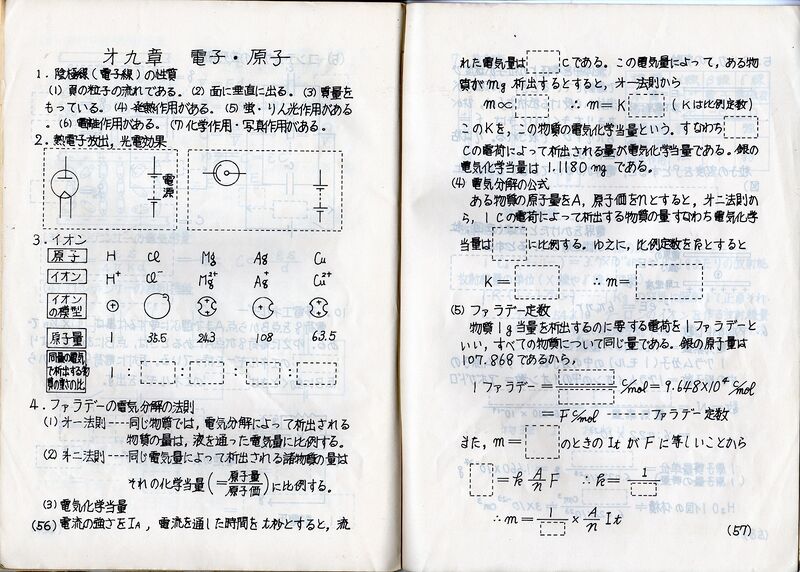 才九章 電子・原子
1. 陰極線(電子線)の性質
(1) 負の粒子の流れである。(2) 面に垂直に出る。(3) 質量を
もっている。(4) 発熱作用がある。(5) 蛍・りん光作用がある
。(6) 電離作用がある。(7) 化学作用・写真作用がある。
2. 熱電子放出, 光電効果
電源
3. イオン
原子 H Cl Mg Ag Cu
イオン H⁺ Cl⁻ Mg²⁺ Ag⁺ Cu²⁺
イオンの模型
原子量 1 35.5 24.3 108 63.5
同量の電気で析出する物質の量の比 1 : : : :
4. ファラデーの電気分解の法則
(1) 才一法則---同じ物質では, 電気分解によって析出される
物質の量は, 液を通った電気量に比例する。
(2) 才二法則---同じ電気量によって析出される諸物質の量は
それの化学当量(=原子量/原子価)に比例する。
(3) 電気化学当量
(56) 電流の強さをIA, 電流を通した時間をt秒とすると, 流
れた電気量は Cである。この電気量によって, ある物
質が mg 析出するとすると, 才一法則から
m∝ ∴ m=K (Kは比例定数)
このKを, この物質の電気化学当量という。すなわち
Cの電荷によって析出される量が電気化学当量である。銀の
電気化学当量は 1.1180 mg である。
(4) 電気分解の公式
ある物質の原子量をA, 原子価をnとすると, 才二法則か
ら, 1Cの電荷によって析出する物質の量すなわち電気化学
当量は に比例する。ゆえに, 比例定数をkとすると
K= ∴ m=
(5) ファラデー定数
物質1g当量を析出するのに要する電荷を1ファラデーと
いい, すべての物質について同じ量である。銀の原子量は
107.868であるから,
1ファラデー= C/mol=9.648×10⁴ C/mol
=F C/mol -----ファラデー定数
また, m= のときの It が F に等しいことから
=k A/n F ∴ k=1/
∴ m=1/ × A/n It
(57)